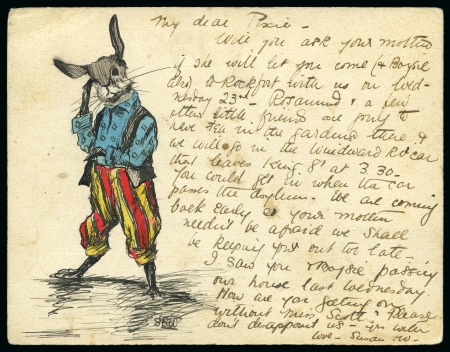 My dear Pixie -
Will you ask your mother
if she will let you come (& Boysie
also) to Rockfort with us on Wed-
nesday 23rd - Rosamund & a few
other little friends are going to
have tea in the gardens there &
we will go in the Windward Rd car
that leaves King St at 3.30 -
You could get in when the car
passes the asylum. We are coming
back early so your mother
needn't be afraid we shall
be keeping you out too late -
I saw you & Boysie passing
our house last Wednesday
How are you getting on
without Miss Scott? Please
don't disappoint us -
love - Susan